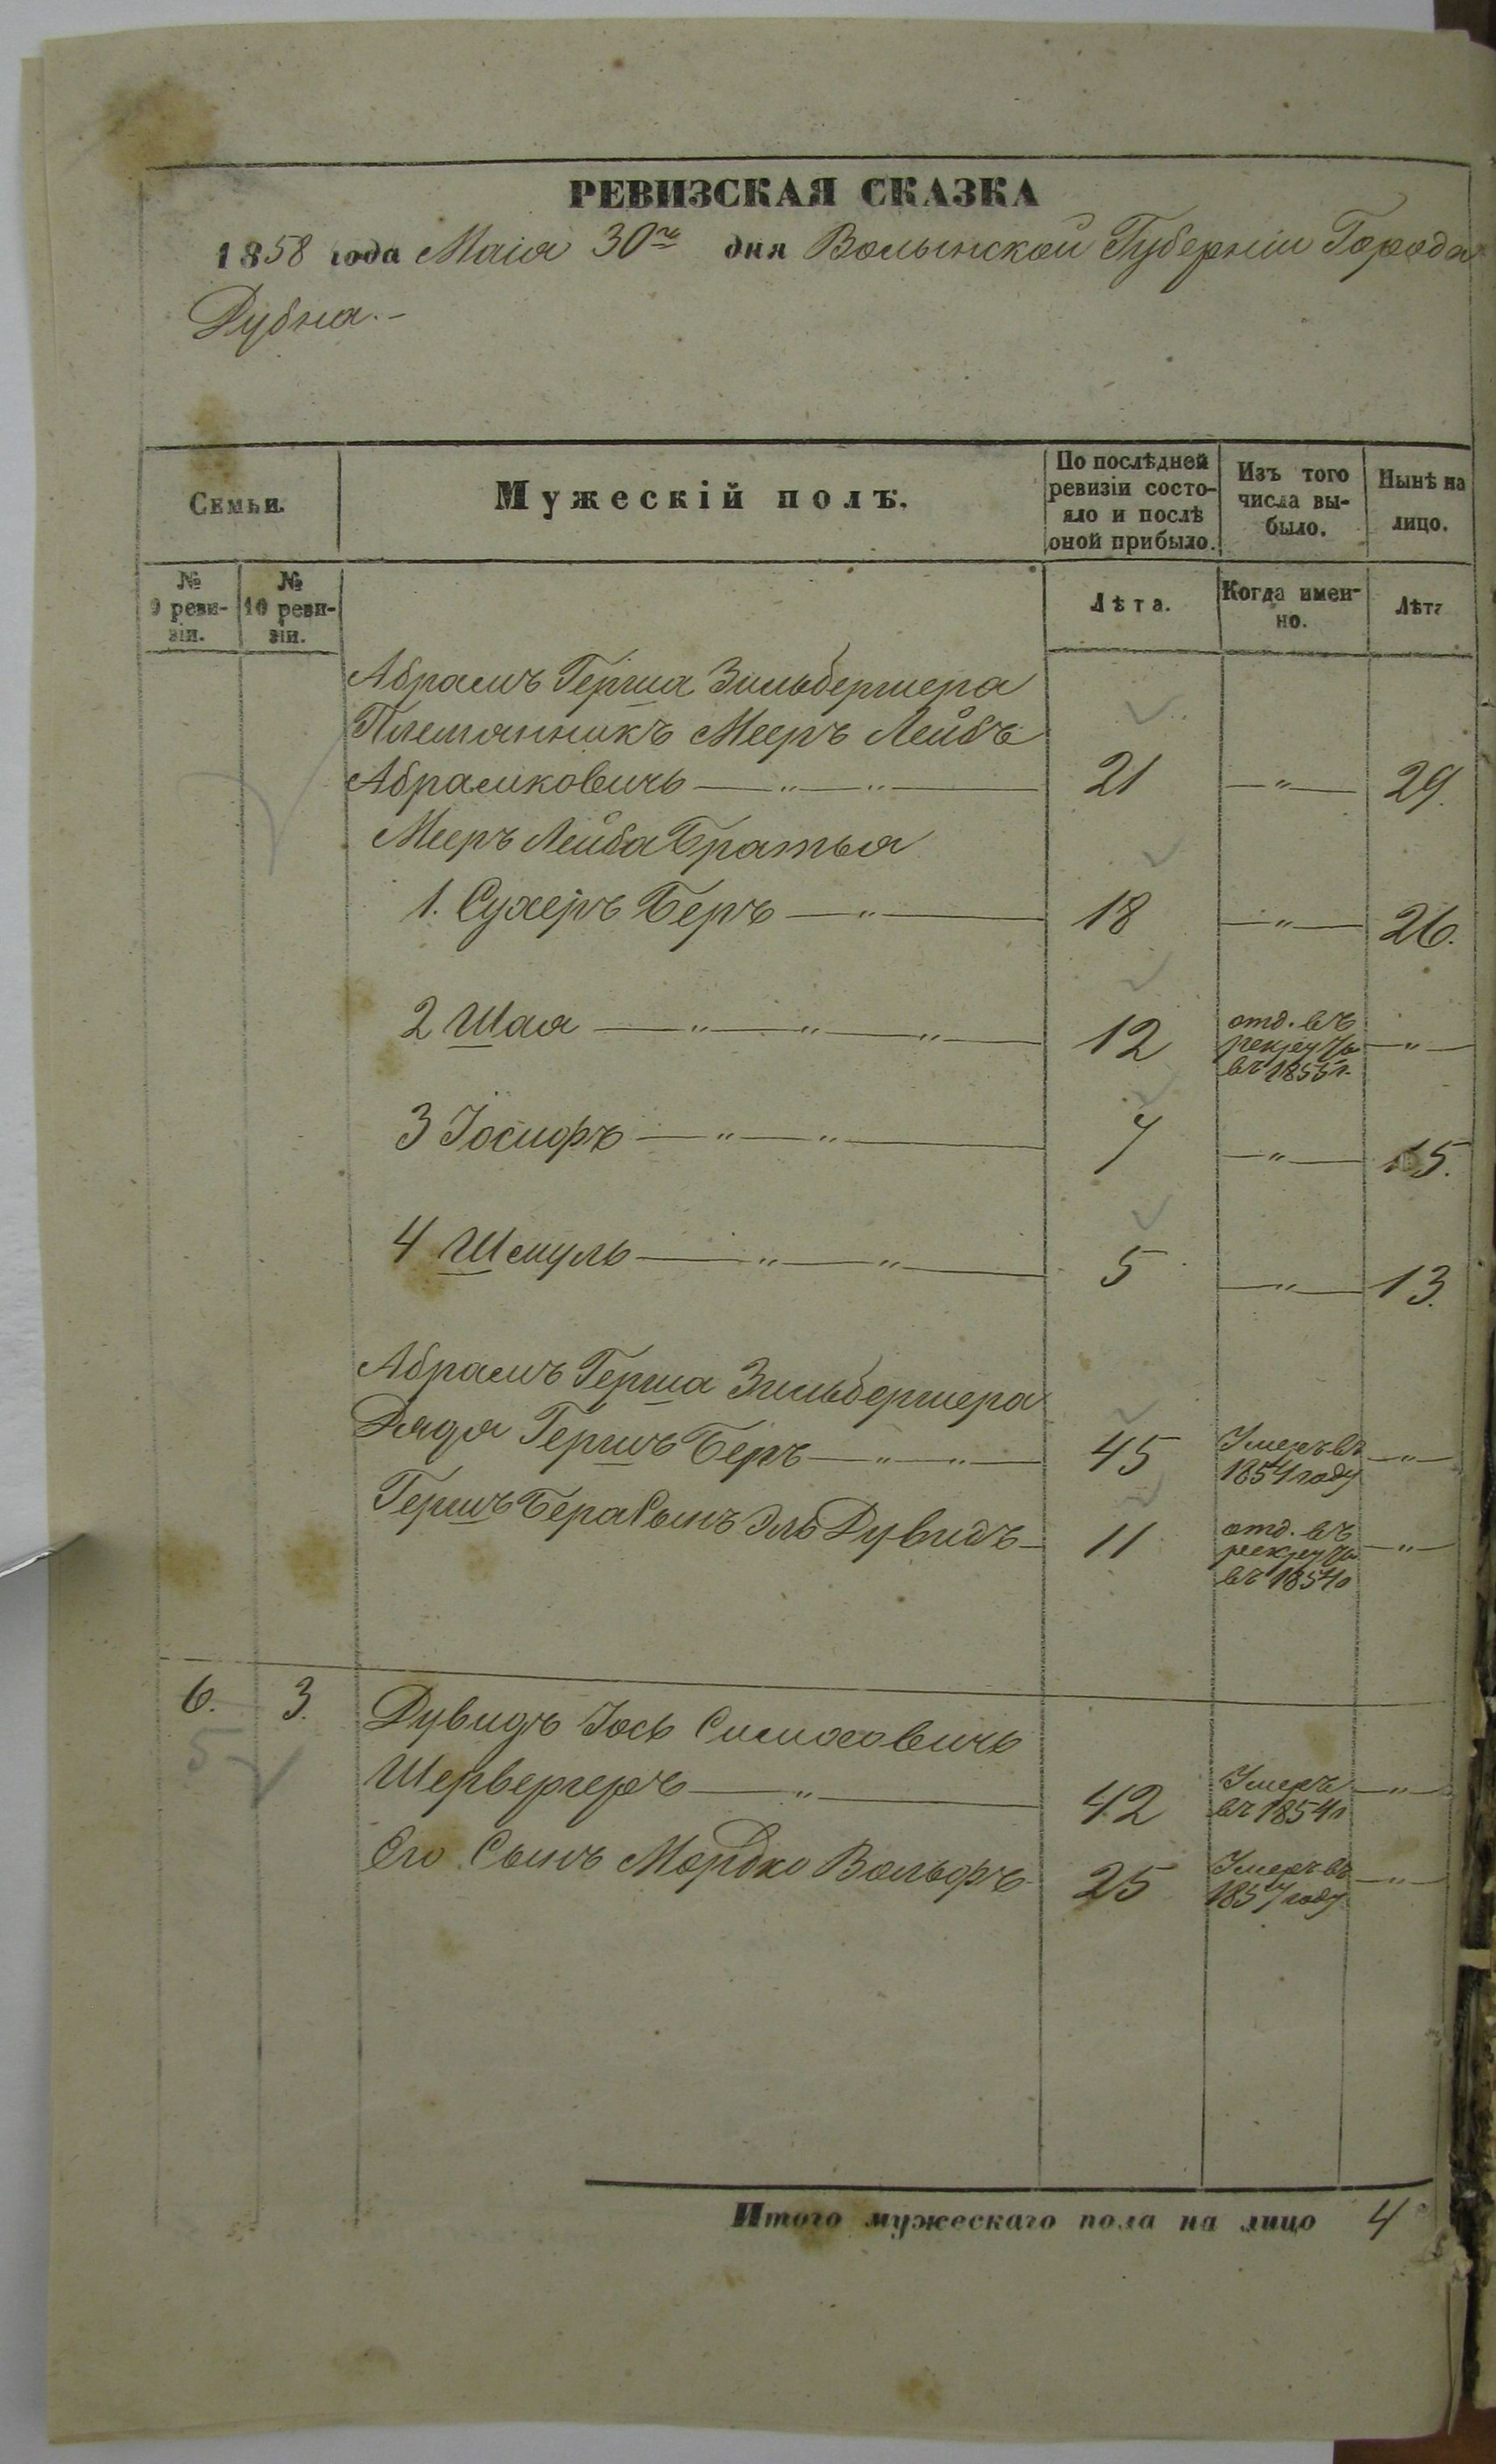 РЕВИЗСКАЯ СКАЗКА
1858 года Маія 30го дня Волынской Губерніи Города
Дубна.-
Семьи.
Мужескій полъ.
По послѣдней
ревизіи состо-
яло и послѣ
оной прибыло.
Изъ того
числа вы-
было.
Нынѣ на
лицо.
№
9 реви-
зіи.
№
10 реви-
зіи.
Лѣта.
Когда имен-
но.
Лѣта
Абрамъ Герша Зильбермера
Племянникъ Мееръ Лейбъ
Абрамковичъ — „ — „ — 21 — „ — 29.
Мееръ Лейба Братья
1. Сухеръ Беръ — „ — 18 — „ — 26.
2 Шая — „ — „ — „ — 12 отд. въ — „ —
рекруты
въ 1855 г.
3 Іосифъ — „ — „ — 7 — „ — 15.
4 Шмуль — „ — „ — 5 — „ — 13.
Абрамъ Герша Зильбермера
Дядя Гершъ Беръ — „ — „ — 45 Умеръ въ — „ —
1854 году
Гершъ Бера Сынъ Эль Дувидъ — 11 отд. въ — „ —
рекруты
въ 1854 г
6. 3. Дувидъ Іось Симховичъ
5
Шервергеръ — „ — 42 Умеръ — „ —
въ 1854 г
Его Сынъ Мордко Вольфъ 25 Умеръ въ — „ —
1857 году
Итого мужескаго пола на лицо 4